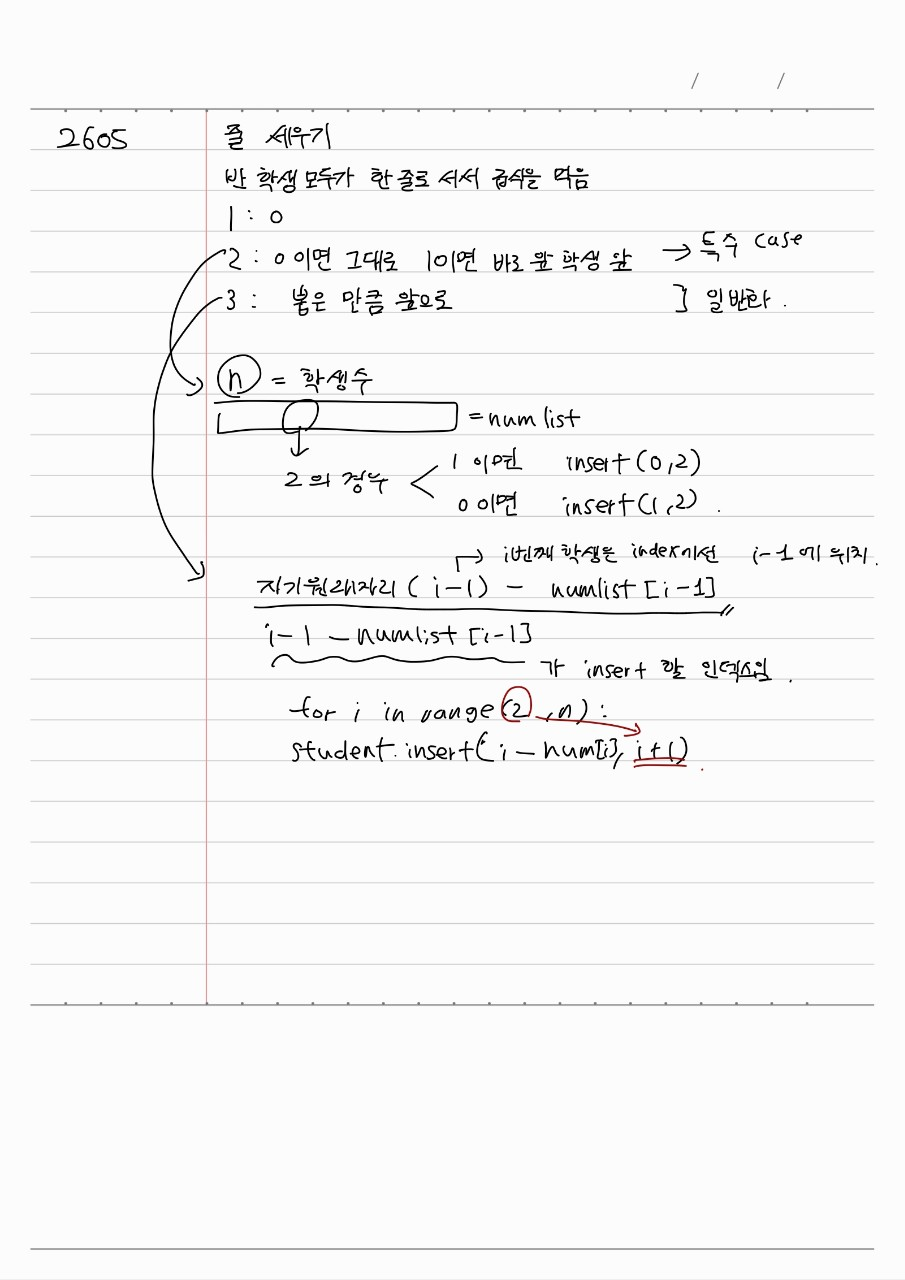 / /
2605 줄 세우기
반 학생 모두가 한 줄로 서서 급식을 먹음
1 : 0
2 : 0이면 그대로 1이면 바로 앞 학생 앞 → 특수 case
3 : 뽑은 만큼 앞으로 } 일반화.
n = 학생수
= numlist
2의 경우 < 1 이면 insert(0,2)
0이면 insert(1,2).
→ i번째 학생은 index에선 i-1에 위치.
자기원래자리 (i-1) - numlist [i-1]
i-1 - numlist [i-1]
가 insert 할 인덱스임.
for i in range(2, n):
student.insert(i - num[i], i+1).